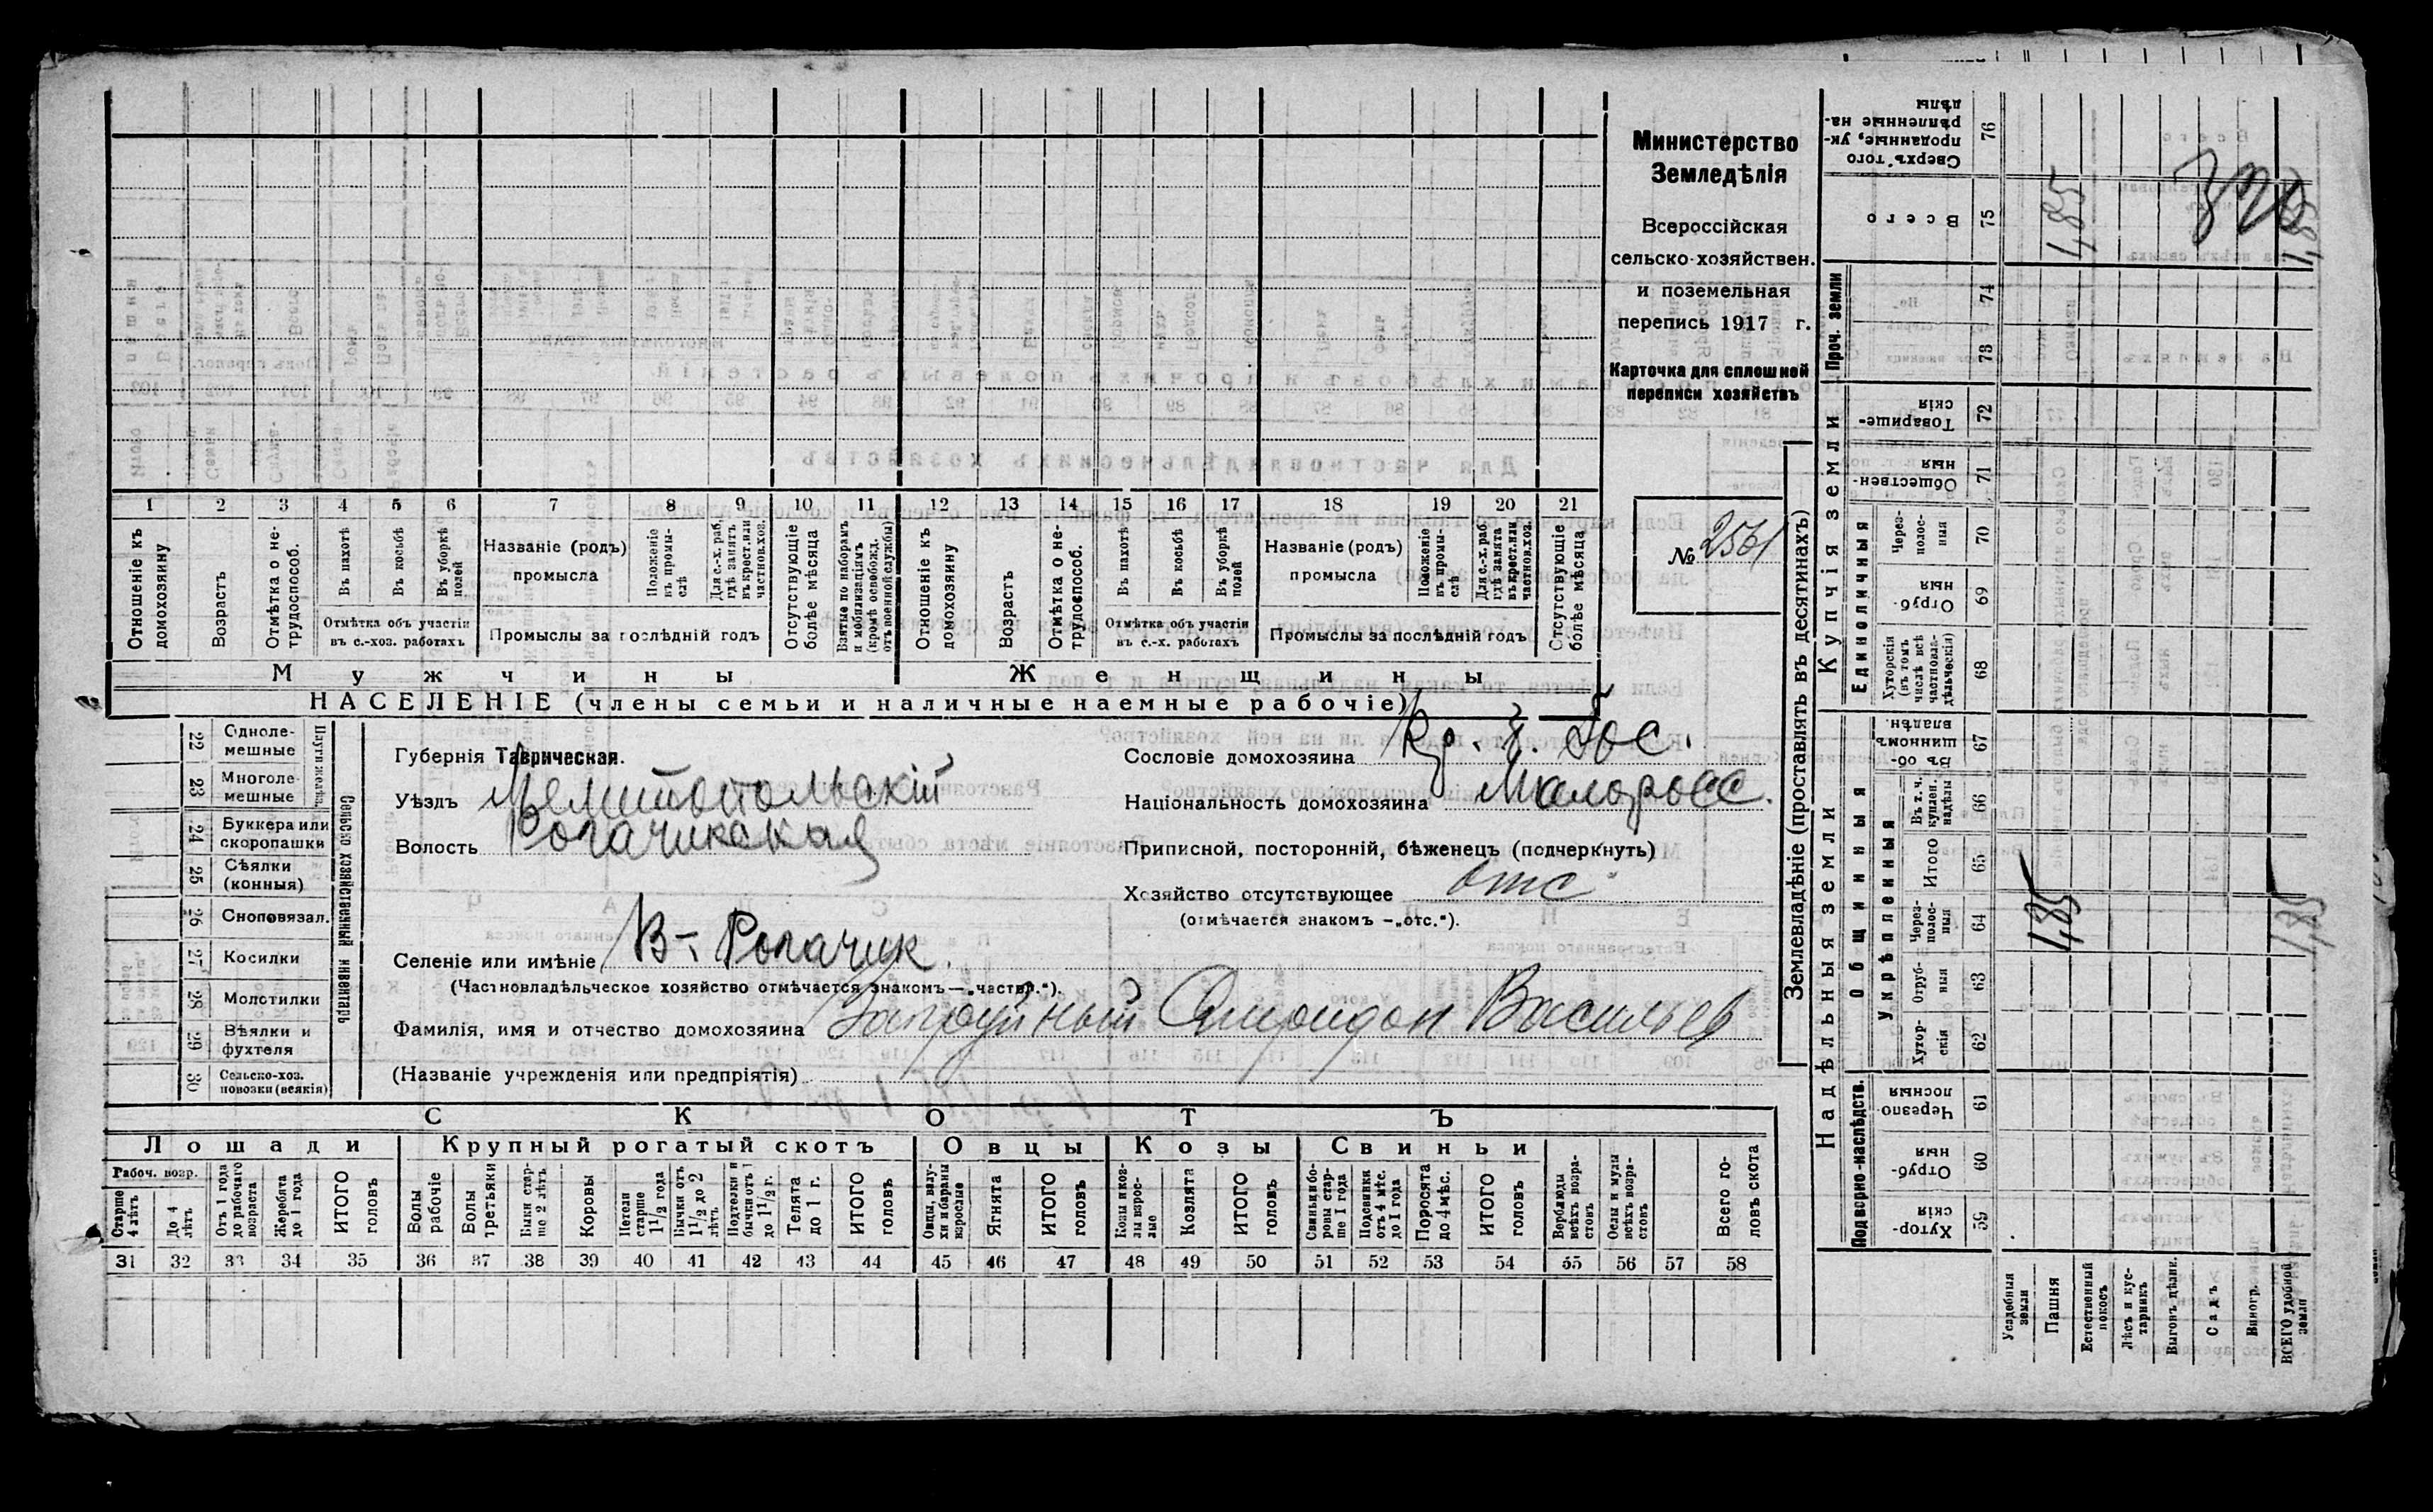 Министерство
Земледѣлія
Всероссійская
сельско-хозяйствен.
и поземельная
перепись 1917 г.
Карточка для сплошной
переписи хозяйствъ
№ 2561
1 2 3 4 5 6 7 8 9 10 11 12 13 14 15 16 17 18 19 20 21
Отношеніе къ домохозяину
Возрастъ
Отмѣтка о нетрудоспособ.
Въ пахотѣ
Въ косьбѣ
Въ уборкѣ полей
Отмѣтка объ участіи въ с.-хоз. работахъ
Названіе (родъ) промысла
Положеніе въ промыслѣ
Для с.-х. раб. гдѣ занятъ въ крест. или частнов. хоз.
Промыслы за послѣдній годъ
Отсутствующіе болѣе мѣсяца
Взятые по наборамъ и мобилизаціямъ (кромѣ освобожд. отъ военной службы)
Отношеніе къ домохозяину
Возрастъ
Отмѣтка о нетрудоспособ.
Въ пахотѣ
Въ косьбѣ
Въ уборкѣ полей
Отмѣтка объ участіи въ с.-х. работахъ
Названіе (родъ) промысла
Положеніе въ промыслѣ
Для с.-х. раб. гдѣ занята въ крест. или частнов. хоз.
Промыслы за послѣдній годъ
Отсутствующіе болѣе мѣсяца
Мужчины Женщины
НАСЕЛЕНІЕ (члены семьи и наличные наемные рабочіе)
22 Однолемешные
23 Многолемешные
24 Буккера или скоропашки
25 Сѣялки (конныя)
26 Сноповязал.
27 Косилки
28 Молотилки
29 Вѣялки и фухтеля
30 Сельско-хоз. повозки (всякія)
Плуги желѣз.
Сельско хозяйственный инвентарь
Губернія Таврическая.
Уѣздъ Мелитопольскій
Волость Рогачикская
Селеніе или имѣніе В-Рогачик.
(Частновладѣльческое хозяйство отмѣчается знакомъ — „частвр.“).
Сословіе домохозяина Кр. Гос.
Національность домохозяина Малоросс.
Приписной, посторонній, бѣженецъ (подчеркнуть)
Хозяйство отсутствующее отс
(отмѣчается знакомъ — „отс.“).
Фамилія, имя и отчество домохозяина Спиридон Васильев
(Названіе учрежденія или предпріятія)
СКОТЪ
Лошади Крупный рогатый скотъ Овцы Козы Свиньи
Рабоч. возр.
Старше 4 лѣтъ
До 4 лѣтъ
Отъ 1 года до рабочаго возраста
Жеребята до 1 года
ИТОГО головъ
Волы рабочіе
Волы третьяки
Быки старше 2 лѣтъ
Коровы
Нетели старше 1 1/2 года
Бычки отъ 1 1/2 до 2 лѣтъ
Подтелки и бычки отъ 1 до 1 1/2 г.
Телята до 1 г.
ИТОГО головъ
Овцы, валухи и бараны взрослые
Ягнята
ИТОГО головъ
Козы и козлы взрослые
Козлята
ИТОГО головъ
Свиньи и боровы старше 1 года
Подсвинки отъ 4 мѣс. до 1 года
Поросята до 4 мѣс.
ИТОГО головъ
Верблюды всѣхъ возрастовъ
Ослы и мулы всѣхъ возрастовъ
Всего головъ скота
31 32 33 34 35 36 37 38 39 40 41 42 43 44 45 46 47 48 49 50 51 52 53 54 55 56 57 58
Землевладѣніе (проставлять въ десятинахъ)
Надѣльныя земли Купчія земли Проч. земли
Подворно-наслѣдств.
Общинныя
Укрѣпленныя
Единоличныя
Хуторскія 59
Отрубныя 60
Черезполосныя 61
Хуторскія 62
Отрубныя 63
Черезполосныя 64
Итого 65
Въ т. ч. куплен. надѣлы 66
Въ общинномъ владѣн. 67
Хуторскія (въ томъ числѣ всѣ частновладѣльческія) 68
Отрубныя 69
Черезполосныя 70
Общественныя 71
Товарищескія 72
73
74
Всего 75
Сверхъ того проданные, укрѣпленные надѣлы 76
Усадебныя земли
Пашня 1,85 1,85
Естественный покосъ
Лѣсъ и кустарникъ
Выгонъ дѣлян.
Садъ
Виногр.
ВСЕГО удобной земли